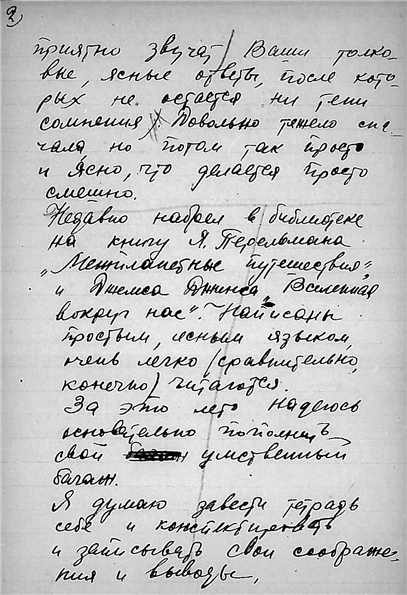 2
приятно звучат Ваши толко-
вые, ясные ответы, после кото-
рых не остается ни тени
сомнения. Довольно тяжело сна-
чала но потом так просто
и ясно, что делается просто
смешно.
Недавно набрел в библиотеке
на книгу Я. Перельмана
"Межпланетные путешествия"
и Джемса Джинса "Вселенная
вокруг нас". Написаны
простым, ясным языком,
очень легко (сравнительно,
конечно) читаются.
За это лето надеюсь
основательно пополнить
свой умственный
багаж.
Я думаю завести тетрадь
себе и конспектировать
и записывать свои соображе-
ния и выводы,